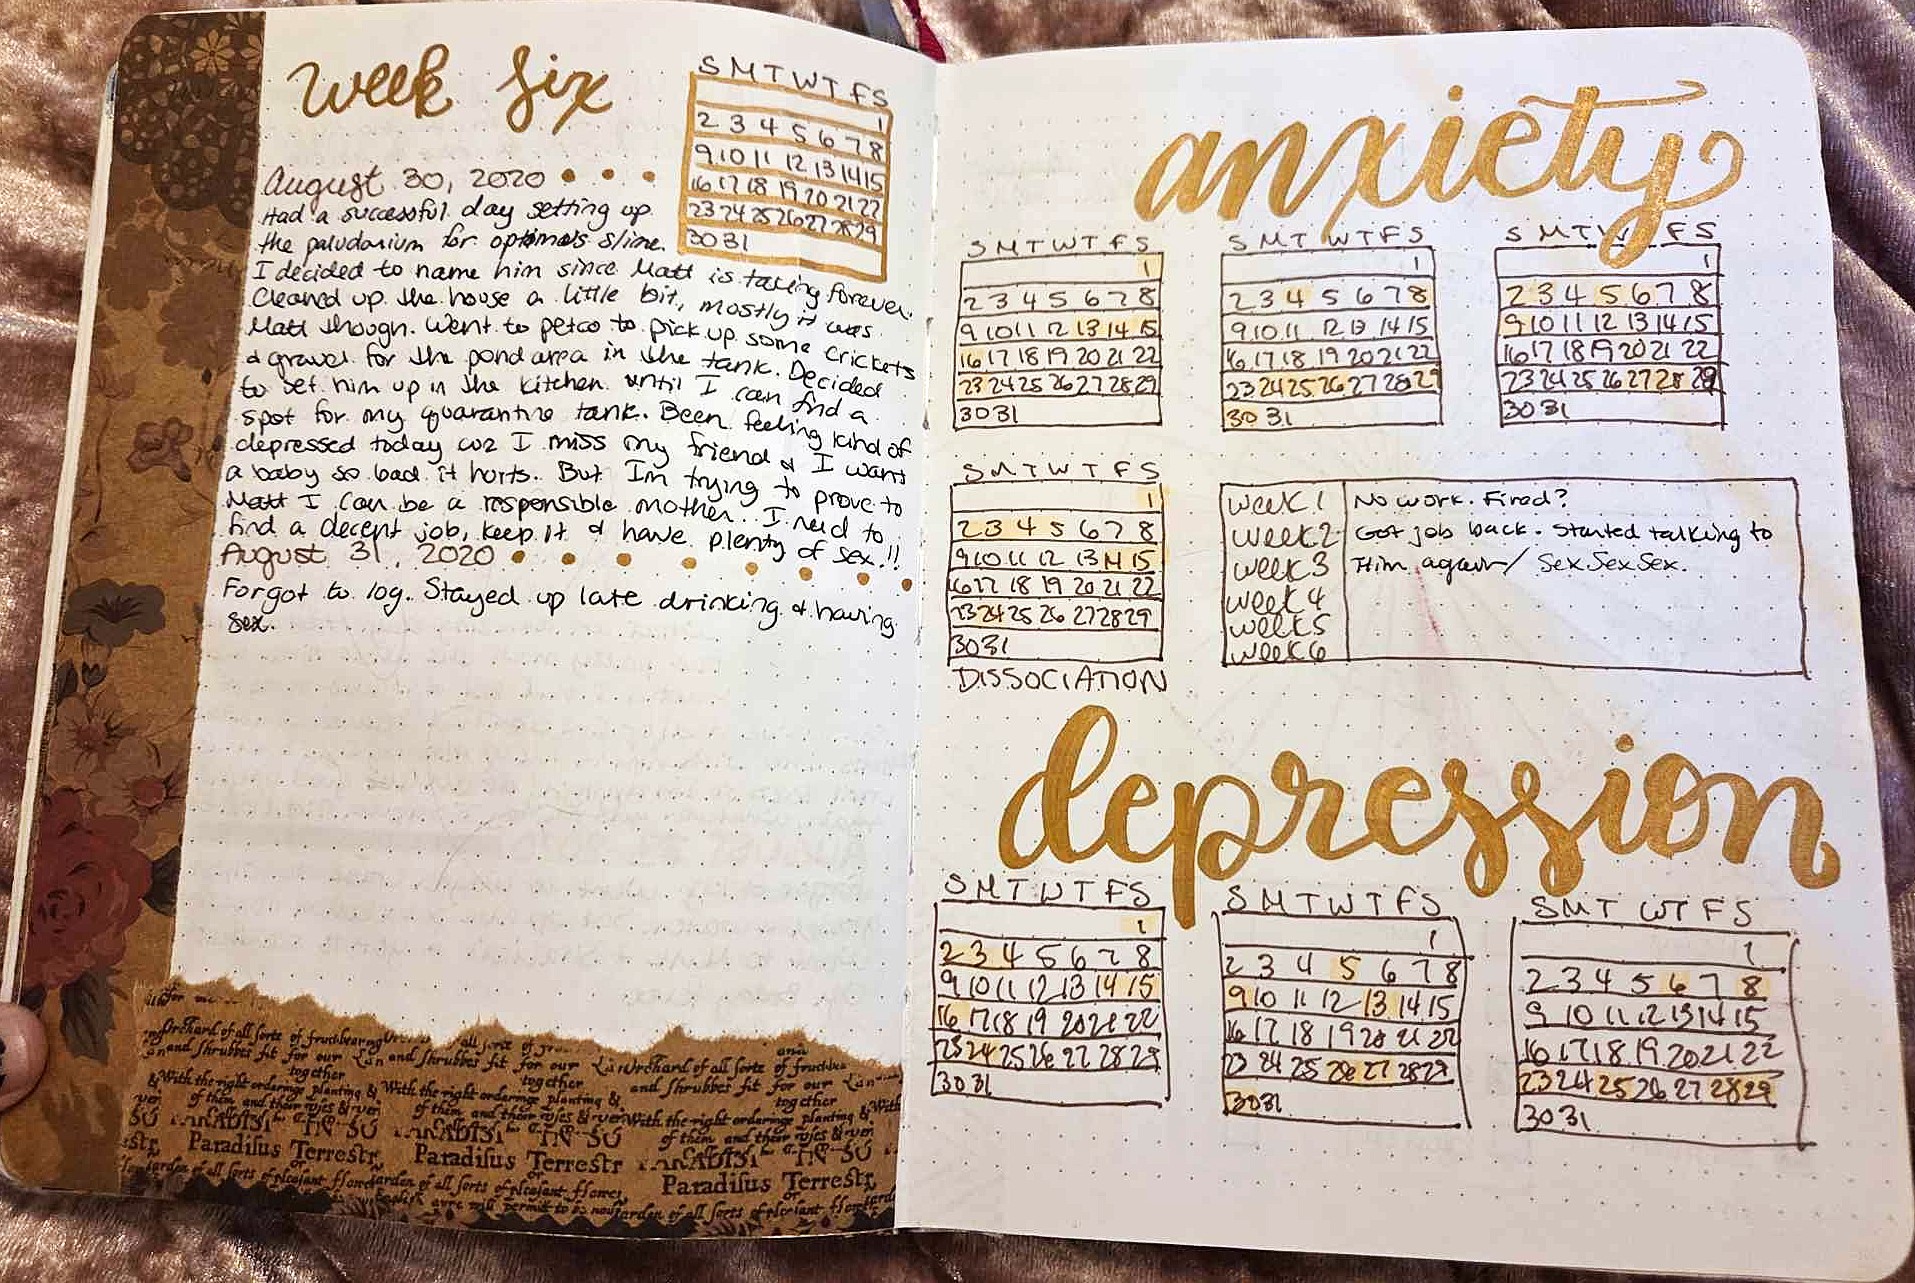 week six
S M T W T F S
1
2 3 4 5 6 7 8
9 10 11 12 13 14 15
16 17 18 19 20 21 22
23 24 25 26 27 28 29
30 31
August 30, 2020
Had a successful day setting up
the paludarium for optimo's slime.
I decided to name him since Matt is taking forever.
Cleaned up the house a little bit, mostly it was
Matt though. Went to petco to pick up some crickets
& gravel for the pond area in the tank. Decided
to set him up in the kitchen until I can find a
spot for my quarantine tank. Been feeling kind of
depressed today coz I miss my friend & I want
a baby so bad it hurts. But Im trying to prove to
Matt I can be a responsible mother. I need to
find a decent job, keep it & have plenty of sex!!
August 31, 2020
Forgot to log. Stayed up late drinking & having
sex.
Orchard of all sorte of fruitbearing
and shrubbes fit for our Lan and shrubbes fit for our Lan
together
With the right orderinge planting & With the right orderinge planting &
of them and their vses & ver
Paradisus Terrestr Paradisus Terrestr
Paradisus Terrestr
arden of all sorts of pleasant flowers
anxiety
S M T W T F S
1
2 3 4 5 6 7 8
9 10 11 12 13 14 15
16 17 18 19 20 21 22
23 24 25 26 27 28 29
30 31
S M T W T F S
1
2 3 4 5 6 7 8
9 10 11 12 13 14 15
16 17 18 19 20 21 22
23 24 25 26 27 28 29
30 31
S M T W F S
1
2 3 4 5 6 7 8
9 10 11 12 13 14 15
16 17 18 19 20 21 22
23 24 25 26 27 28 29
30 31
S M T W T F S
1
2 3 4 5 6 7 8
9 10 11 12 13 14 15
16 17 18 19 20 21 22
23 24 25 26 27 28 29
30 31
DISSOCIATION
week 1 No work. Fired?
week 2 Got job back. Started talking to
week 3 Him again/ Sex Sex Sex.
week 4
week 5
week 6
depression
S M T W T F S
1
2 3 4 5 6 7 8
9 10 11 12 13 14 15
16 17 18 19 20 21 22
23 24 25 26 27 28 29
30 31
S M T W T F S
1
2 3 4 5 6 7 8
9 10 11 12 13 14 15
16 17 18 19 20 21 22
23 24 25 26 27 28 29
30 31
S M T W T F S
1
2 3 4 5 6 7 8
9 10 11 12 13 14 15
16 17 18 19 20 21 22
23 24 25 26 27 28 29
30 31